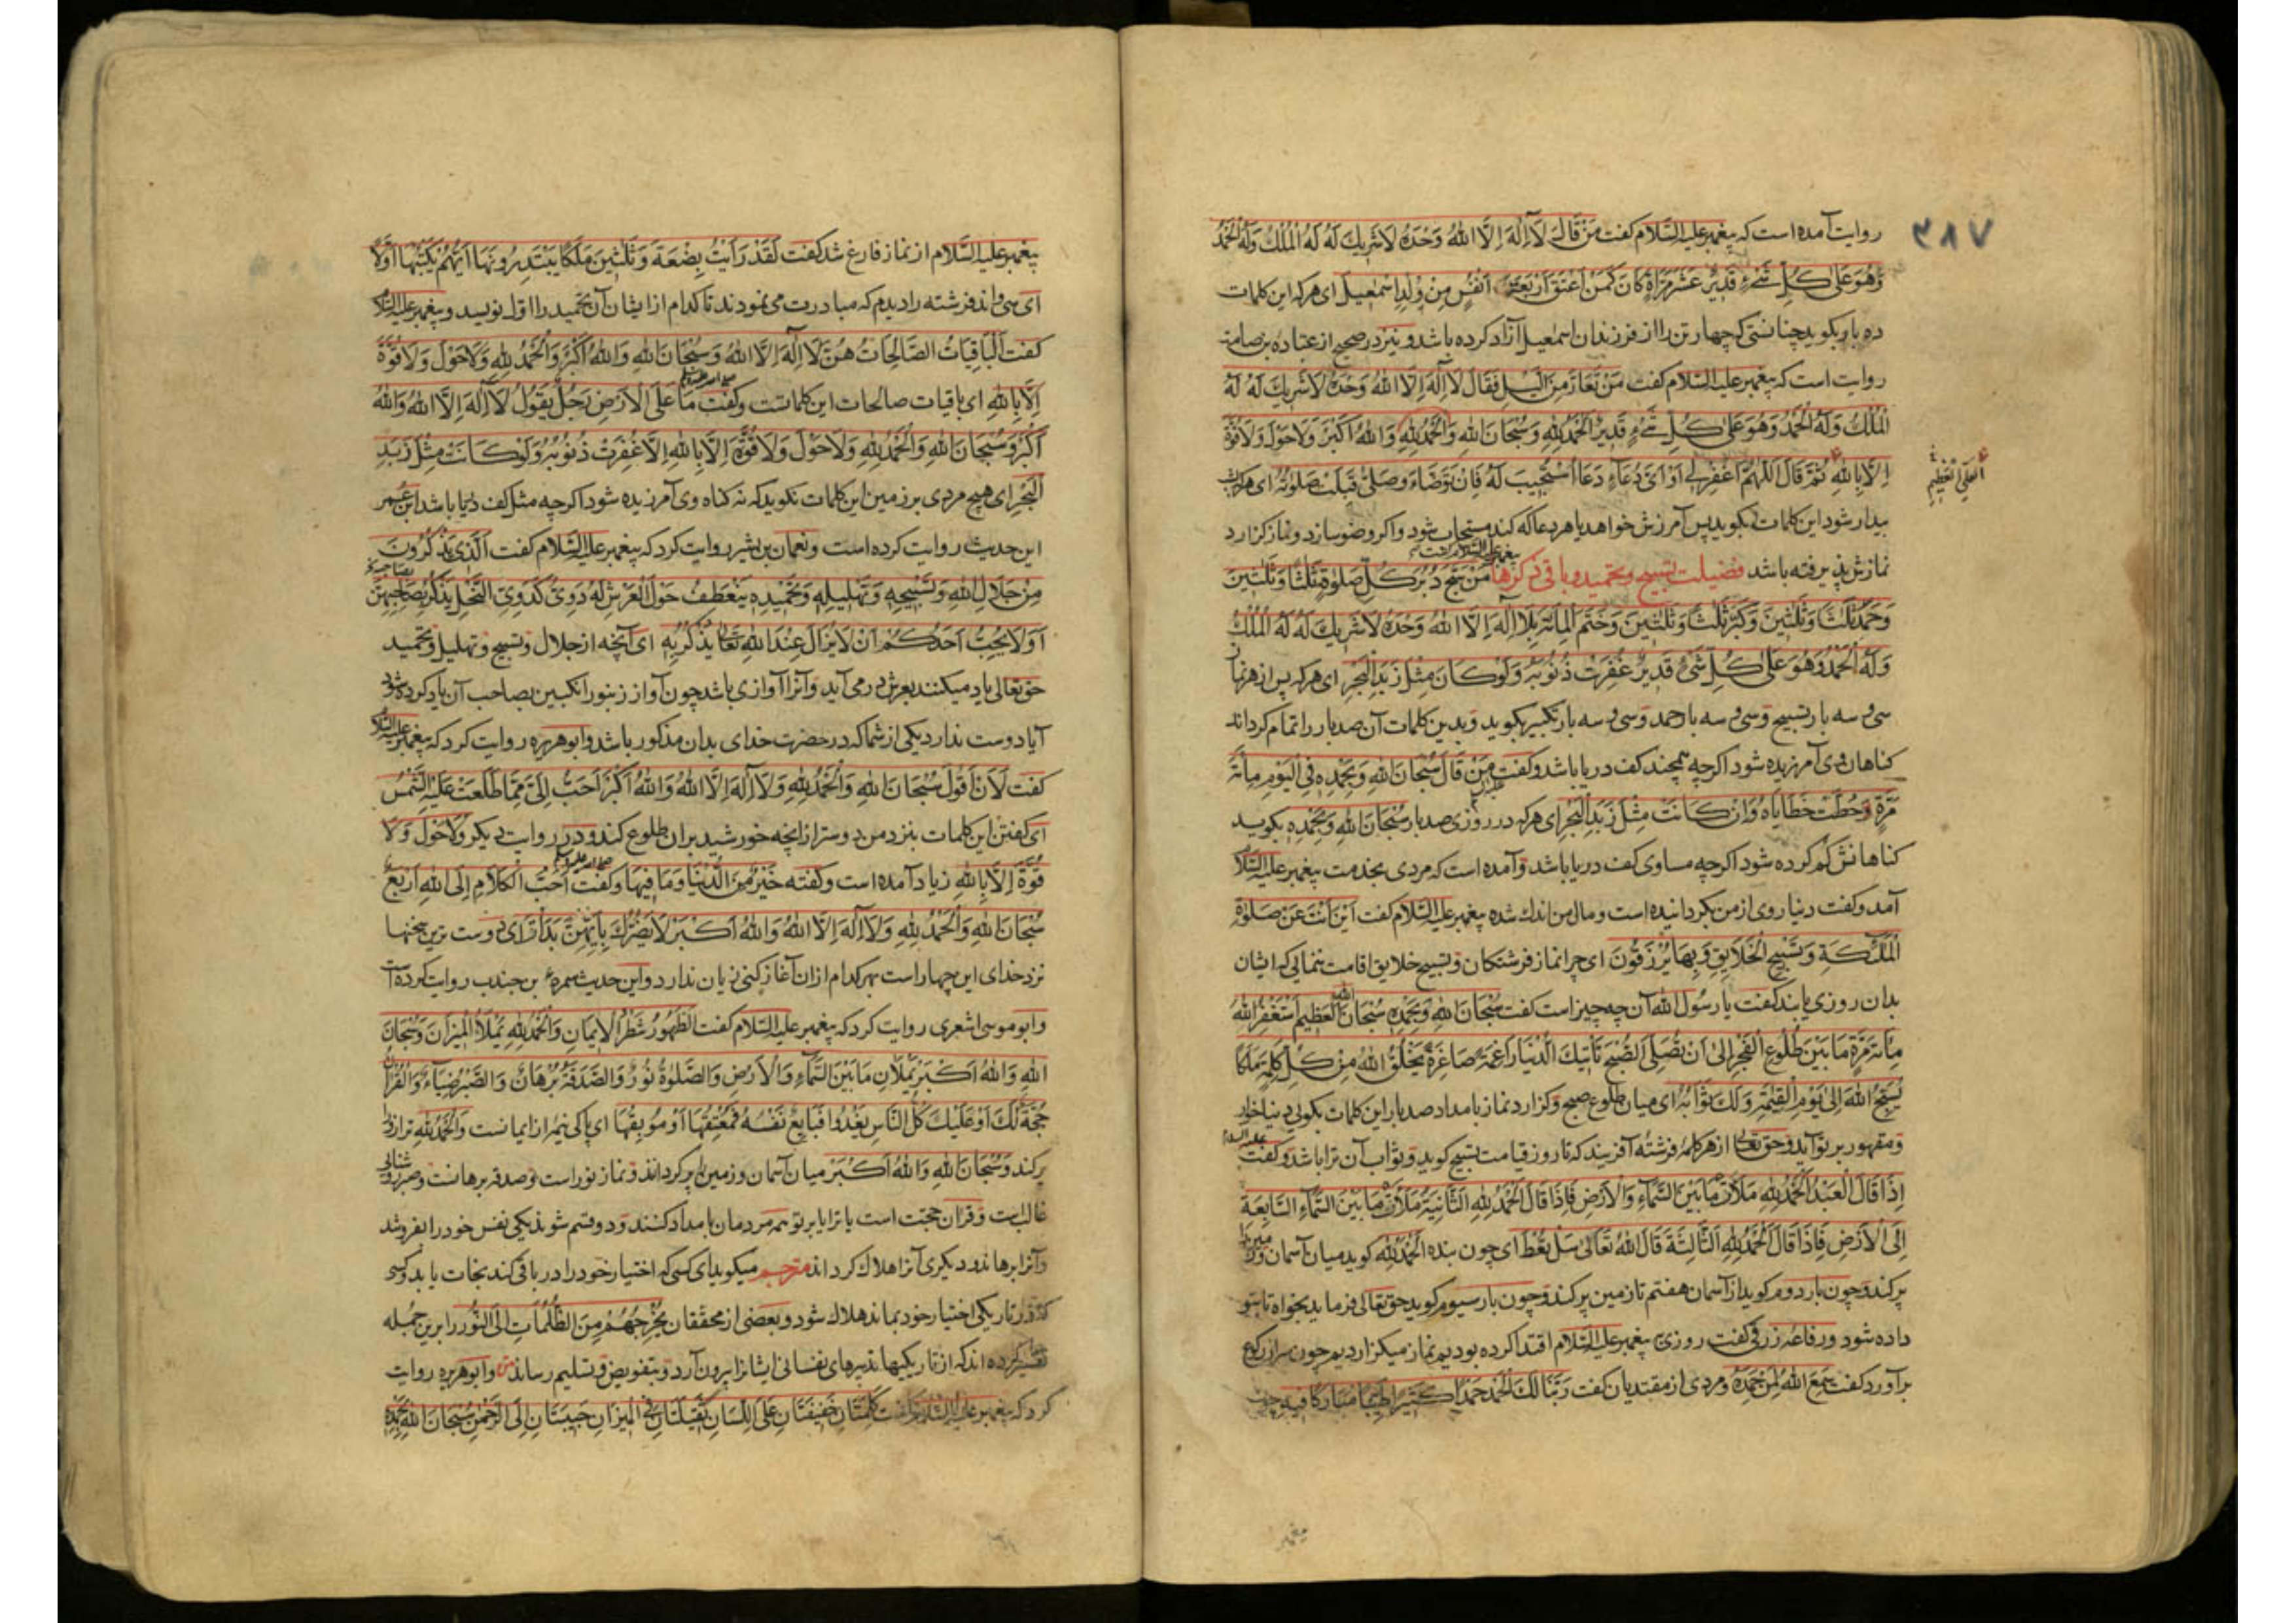 ٣٨٧
روایت آمده است که پیغمبر علیه السّلام کفت مَنْ قَالَ لَا اِلٰهَ اِلَّا اللهُ وَحْدَهُ لَاشَرِیكَ لَهُ لَهُ الْمُلْكُ وَلَهُ الْحَمْدُ
وَهُوَ عَلٰی کُلِّ شَیْءٍ قَدِیْرٌ عَشْرَ مَرَّاةٍ کَانَ کَمَنْ اَعْتَقَ اَرْبَعَةَ اَنْفُسٍ مِنْ وُلِدِ اِسْمٰعِیلَ ای هرکه این کلمات
ده بار بکوید چنانستی که چهار تن را از فرزندان اسمعیل آزاد کرده باشد و نیز در صحیح از عباده بن صامت
روایت است که پیغمبر علیه السّلام کفت مَنْ تَعَارَّ مِنَ اللَّیْلِ فَقَالَ لَا اِلٰهَ اِلَّا اللهُ وَحْدَهُ لَاشَرِیكَ لَهُ لَهُ
الْمُلْكُ وَلَهُ الْحَمْدُ وَهُوَ عَلٰی کُلِّ شَیْءٍ قَدِیْرٌ الْحَمْدُ لِلّٰهِ وَسُبْحَانَ اللهِ وَالْحَمْدُ لِلّٰهِ وَاللهُ اَکْبَرُ وَلَاحَوْلَ وَلَاقُوَّةَ
اِلَّا بِاللهِ ثُمَّ قَالَ اَللّٰهُمَّ اغْفِرْ لِی اَوْ اَیَّ دُعَاءٍ دَعَا اُسْتُجِیبَ لَهُ فَاِنْ تَوَضَّاءَ وَصَلّٰی قُبِلَتْ صَلٰوتُهُ ای هرکه شب
العَلِیِّ العَظِیْمِ
بیدار شود این کلمات بکوید پس آمرزش خواهد یا هر دعا که کند مستجاب شود و اکر وضو سازد و نماز کزارد
نمازش پذیرفته باشد فضیلت تسبیح و تحمید و باقی ذکرها پیغمبر علیه السّلام کفت مَنْ سَبَّحَ دُبُرَ کُلِّ صَلٰوةٍ ثَلٰثًا وَثَلٰثِینَ
وَحَمِدَ ثَلٰثًا وَثَلٰثِینَ وَکَبَّرَ ثَلٰثًا وَثَلٰثِینَ وَخَتَمَ الْمِائَةَ بِلَا اِلٰهَ اِلَّا اللهُ وَحْدَهُ لَاشَرِیكَ لَهُ لَهُ الْمُلْكُ
وَلَهُ الْحَمْدُ وَهُوَ عَلٰی کُلِّ شَیْءٍ قَدِیْرٌ غُفِرَتْ ذُنُوبُهُ وَلَوْ کَانَ مِثْلَ زَبَدِ الْبَحْرِ ای هرکه پس از هر نماز
سی و سه بار تسبیح و سی و سه بار حمد و سی و سه بار تکبیر بکوید و بدین کلمات آن صد بار را تمام کرداند
کناهان وی آمرزیده شود اکرچه همچند کف دریا باشد و کفت مَنْ قَالَ سُبْحَانَ اللهِ وَبِحَمْدِهِ فِی الْیَوْمِ مِائَةَ
مَرَّةٍ حُطَّتْ خَطَایَاهُ وَاِنْ کَانَتْ مِثْلَ زَبَدِ الْبَحْرِ ای هرکه در روزی صد بار سُبْحَانَ اللهِ وَبِحَمْدِهِ بکوید
کناهانش کم کرده شود اکرچه مساوی کف دریا باشد و آمده است که مردی بخدمت پیغمبر علیه السّلام
آمد و کفت دنیا روی از من بکردانیده است و مال من اندك شده پیغمبر علیه السّلام کفت اَیْنَ اَنْتَ عَنْ صَلٰوةِ
الْمَلٰئِکَةِ وَتَسْبِیحِ الْخَلَایِقِ وَبِهَا یُرْزَقُونَ ای چرا نماز فرشتکان و تسبیح خلایق اقامت ننمایی که ایشان
بدان روزی یابند کفت یا رسول الله آن چه چیز است کفت سُبْحَانَ اللهِ وَبِحَمْدِهِ سُبْحَانَ اللهِ الْعَظِیمِ اَسْتَغْفِرُ اللهَ
مِائَةَ مَرَّةٍ مَا بَیْنَ طُلُوعِ الْفَجْرِ اِلٰی اَنْ تُصَلِّیَ الصُّبْحَ تَأْتِیكَ الدُّنْیَا رَاغِمَةً صَاغِرَةً یَخْلُقُ اللهُ مِنْ کُلِّ کَلِمَةٍ مَلَکًا
یُسَبِّحُ اللهَ اِلٰی یَوْمِ الْقِیٰمَةِ وَلَكَ ثَوَابُهُ ای میان طلوع صبح و کزارد نماز بامداد صد بار این کلمات بکویی دنیا خوار
و مقهور بر تو آید و حق تعالی از هر کلمه فرشته آفریند که تا روز قیامت تسبیح کوید و ثواب آن ترا باشد و کفت علیه السلام
اِذَا قَالَ الْعَبْدُ الْحَمْدُ لِلّٰهِ مَلَأَتْ مَا بَیْنَ السَّمَاءِ وَالْاَرْضِ فَاِذَا قَالَ الْحَمْدُ لِلّٰهِ الثَّانِیَةَ مَلَأَتْ مَا بَیْنَ السَّمَاءِ السَّابِعَةِ
اِلَی الْاَرْضِ فَاِذَا قَالَ الْحَمْدُ لِلّٰهِ الثَّالِثَةَ قَالَ اللهُ تَعَالٰی سَلْ تُعْطَ ای چون بنده الْحَمْدُ لِلّٰهِ کوید میان آسمان و زمین را
پر کند و چون بار دوم کوید از آسمان هفتم تا زمین پر کند و چون بار سیوم کوید حق تعالی فرماید بخواه تا بتو
داده شود و رفاعه زرقی کفت روزی پیغمبر علیه السّلام اقتدا کرده بودیم نماز میکزاردیم چون سر از رکوع
برآورد کفت سَمِعَ اللهُ لِمَنْ حَمِدَهُ و مردی از مقتدیان کفت رَبَّنَا لَكَ الْحَمْدُ حَمْدًا کَثِیرًا طَیِّبًا مُبَارَکًا فِیهِ چون
پیغمبر علیه السّلام از نماز فارغ شد کفت لَقَدْ رَاَیْتُ بِضْعَةَ وَثَلٰثِینَ مَلَکًا یَبْتَدِرُونَهَا اَیُّهُمْ یَکْتُبُهَا اَوَّلًا
ای سی و اند فرشته را دیدم که مبادرت می نمودند تا کدام از ایشان آن تحمید را اول نویسد و پیغمبر علیه السّلام
کفت اَلْبَاقِیَاتُ الصَّالِحَاتُ هُنَّ لَا اِلٰهَ اِلَّا اللهُ وَسُبْحَانَ اللهِ وَاللهُ اَکْبَرُ وَالْحَمْدُ لِلّٰهِ وَلَاحَوْلَ وَلَاقُوَّةَ
اِلَّا بِاللهِ ای باقیات صالحات این کلماتست و کفت صلی الله علیه وسلم مَا عَلَی الْاَرْضِ رَجُلٌ یَقُولُ لَا اِلٰهَ اِلَّا اللهُ وَاللهُ
اَکْبَرُ وَسُبْحَانَ اللهِ وَالْحَمْدُ لِلّٰهِ وَلَاحَوْلَ وَلَاقُوَّةَ اِلَّا بِاللهِ اِلَّا غُفِرَتْ ذُنُوبُهُ وَلَوْ کَانَتْ مِثْلَ زَبَدِ
الْبَحْرِ ای هیچ مردی بر زمین این کلمات نکوید که نه کناه وی آمرزیده شود اکرچه مثل کف دریا باشد ابن عمر
این حدیث روایت کرده است و نعمان بن بشیر روایت کرد که پیغمبر علیه السّلام کفت اَلَّذِی یَذْکُرُونَ
مِنْ جَلَالِ اللهِ وَتَسْبِیحِهِ وَتَهْلِیلِهِ وَتَحْمِیدِهِ یَنْعَطِفُ حَوْلَ الْعَرْشِ لَهُ دَوِیٌّ کَدَوِیِّ النَّحْلِ یَذْکُرُ بِصَاحِبِهِنَّ
اَوَلَا یُحِبُّ اَحَدُکُمْ اَنْ لَا یَزَالَ عِنْدَ اللهِ تَعَالٰی یُذْکَرُ بِهِ ای آنچه از جلال و تسبیح و تهلیل و تحمید
حق تعالی یاد میکنند بعرش در می آید و آنرا آوازی باشد چون آواز زنبور انکبین بصاحب آن یاد کرده شود
آیا دوست ندارد یکی از شما که در حضرت خدای بدان مذکور باشد و ابو هریره روایت کرد که پیغمبر علیه السّلام
کفت لَاَنْ اَقُولَ سُبْحَانَ اللهِ وَالْحَمْدُ لِلّٰهِ وَلَا اِلٰهَ اِلَّا اللهُ وَاللهُ اَکْبَرُ اَحَبُّ اِلَیَّ مِمَّا طَلَعَتْ عَلَیْهِ الشَّمْسُ
ای کفتن این کلمات بنزد من دوستر از انچه خورشید بران طلوع کند و در روایت دیکر وَلَاحَوْلَ وَلَا
قُوَّةَ اِلَّا بِاللهِ زیاد آمده است و کفته خَیْرٌ مِنَ الدُّنْیَا وَمَا فِیهَا و کفت صلی الله علیه وسلم اَحَبُّ الْکَلَامِ اِلَی اللهِ اَرْبَعٌ
سُبْحَانَ اللهِ وَالْحَمْدُ لِلّٰهِ وَلَا اِلٰهَ اِلَّا اللهُ وَاللهُ اَکْبَرُ لَا یَضُرُّكَ بِاَیِّهِنَّ بَدَأْتَ ای دوست ترین سخنها
نزد خدای این چهار است بهر کدام ازان آغاز کنی زیان ندارد و این حدیث سمره بن جندب روایت کرده است
و ابو موسی اشعری روایت کرد که پیغمبر علیه السّلام کفت الطُّهُورُ شَطْرُ الْاِیمَانِ وَالْحَمْدُ لِلّٰهِ یَمْلَأُ الْمِیزَانَ وَسُبْحَانَ
اللهِ وَاللهُ اَکْبَرُ یَمْلَآنِ مَا بَیْنَ السَّمَاءِ وَالْاَرْضِ وَالصَّلٰوةُ نُورٌ وَالصَّدَقَةُ بُرْهَانٌ وَالصَّبْرُ ضِیَاءٌ وَالْقُرْاٰنُ
حُجَّةٌ لَكَ اَوْ عَلَیْكَ کُلُّ النَّاسِ یَغْدُوا فَبَایِعٌ نَفْسَهُ فَمُعْتِقُهَا اَوْ مُوبِقُهَا ای پاکی نیمه از ایمانست وَالْحَمْدُ لِلّٰهِ ترازو را
پر کند وَسُبْحَانَ اللهِ وَاللهُ اَکْبَرُ میان آسمان و زمین را پر کرداند و نماز نور است و صدقه برهانست و صبر روشنائی
غالب است و قرآن حجّت است یا ترا یا بر تو همه مردمان بامداد کنند و دو قسم شوند یکی نفس خود را بفروشد
و آنرا برهاند و دیکری آنرا هلاك کرداند مترجم میکوید ای کسی که اختیار خود را در باقی کند نجات یابد و کسی
که در تاریکی اختیار خود بماند هلاك شود و بعضی از محققان یُخْرِجُهُمْ مِنَ الظُّلُمَاتِ اِلَی النُّورِ را برین جمله
تفسیر کرده اند که از تاریکیها تدبیرهای نفسانی ایشانرا بیرون آرد و بتفویض و تسلیم رساند متن و ابو هریره روایت
کرد که پیغمبر علیه السّلام کفت کَلِمَتَانِ خَفِیفَتَانِ عَلَی اللِّسَانِ ثَقِیلَتَانِ فِی الْمِیزَانِ حَبِیبَتَانِ اِلَی الرَّحْمٰنِ سُبْحَانَ اللهِ وَبِحَمْدِهِ